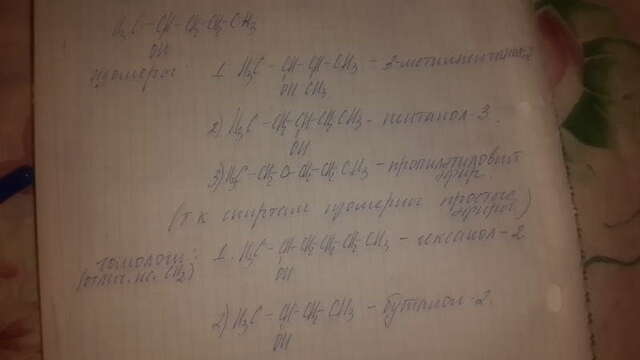 H₃C – CH – CH₂ – CH₂ – CH₃
OH
изомеры:
1. H₃C – CH – CH – CH₃ – 3-метил
OH CH₃
2) H₃C – CH₂ – CH – CH₂ – CH₃ – пентанол-3.
OH
3) H₃C – CH₂ – O – CH₂ – CH₂ – CH₃ – пропилэтиловый
эфир
(т.к. спиртам изомерны простые
эфиры)
гомологи:
(отлич. на CH₂)
1. H₃C – CH – CH₂ – CH₂ – CH₂ – CH₃ – гексанол-2
OH
2) H₃C – CH – CH₂ – CH₃ – бутанол-2.
OH